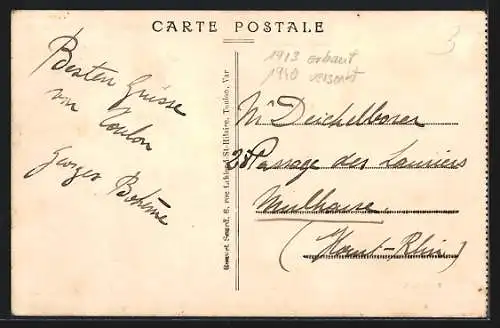 CARTE POSTALE
1913 erbaut
1940 versenkt
3
Besten Grüsse
von Toulon
Georges Bohême
Bouvet Sourd, 8, rue Labbad St-Hilaire, Toulon, Var
Mr Deichelbohrer
38 Passage des Lauriers
Mulhouse
(Haut-Rhin)